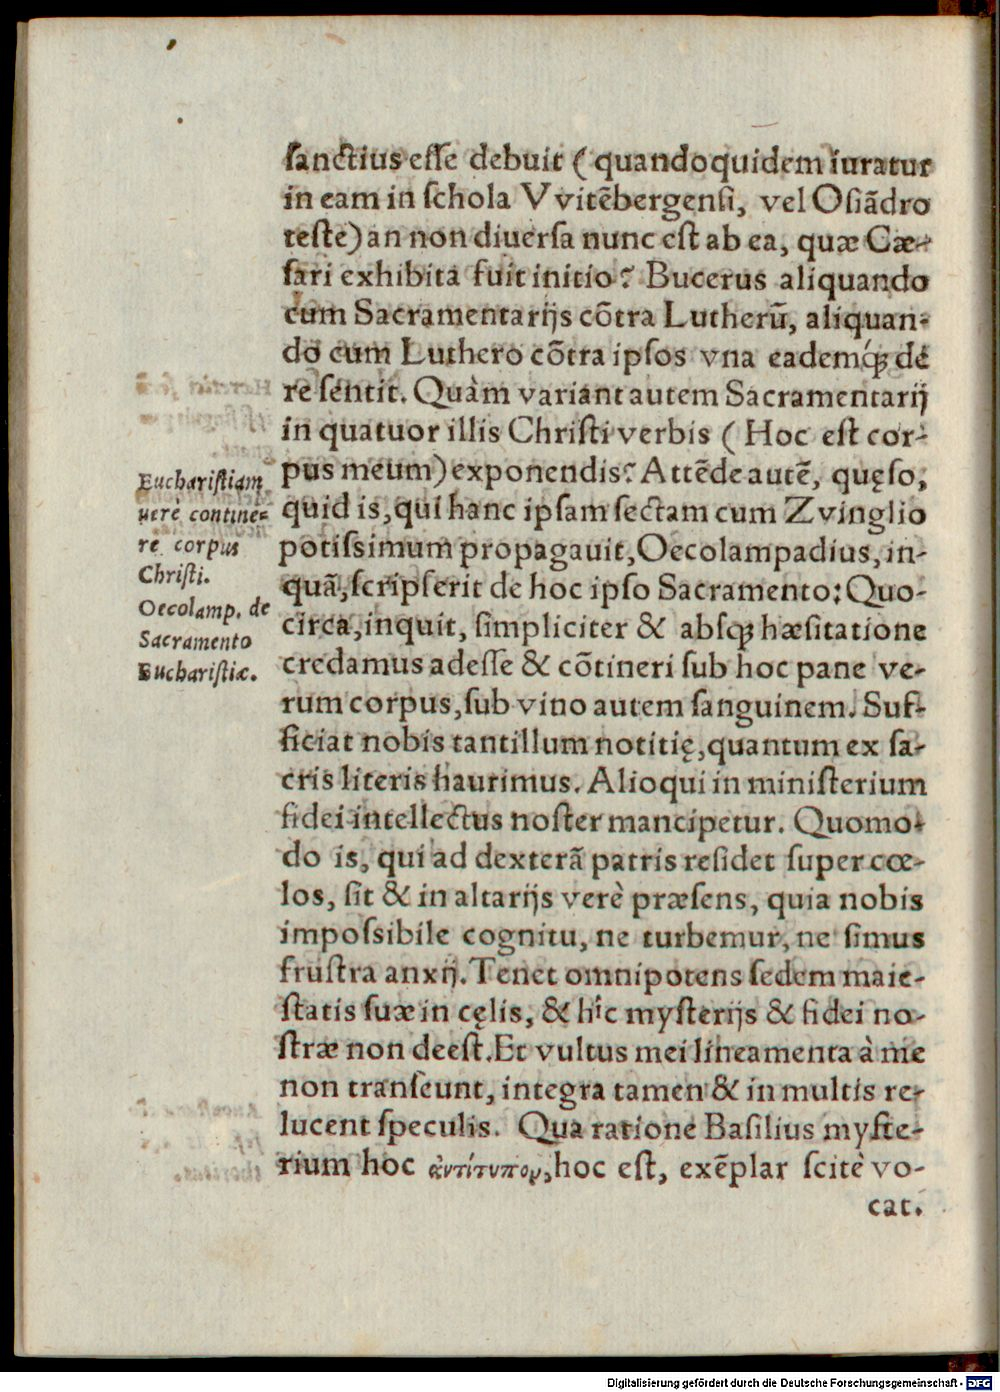 sanctius esse debuit (quandoquidem iuratur
in eam in schola Vvitẽbergensi, vel Osiãdro
teste) an non diuersa nunc est ab ea, quæ Cæ-
sari exhibita fuit initio? Bucerus aliquando
cum Sacramentarijs cõtra Lutherũ, aliquan-
do cum Luthero cõtra ipsos vna eademq́ꝫ de
re sentit. Quàm variant autem Sacramentarij
in quatuor illis Christi verbis (Hoc est cor-
pus meum) exponendis? Attẽde autẽ, quęso,
quid is, qui hanc ipsam sectam cum Zvinglio
potissimum propagauit, Oecolampadius, in-
quã, scripserit de hoc ipso Sacramento: Quo-
circa, inquit, simpliciter & absqꝫ hæsitatione
credamus adesse & cõtineri sub hoc pane ve-
rum corpus, sub vino autem sanguinem. Suf-
ficiat nobis tantillum notitię, quantum ex sa-
cris literis haurimus. Alioqui in ministerium
fidei intellectus noster mancipetur. Quomo-
do is, qui ad dexterã patris residet super cœ-
los, sit & in altarijs verè præsens, quia nobis
impossibile cognitu, ne turbemur, ne simus
frustra anxij. Tenet omnipotens sedem maie-
statis suæ in cęlis, & hîc mysterijs & fidei no-
stræ non deest. Et vultus mei lineamenta à me
non transeunt, integra tamen & in multis re-
lucent speculis. Qua ratione Basilius myste-
rium hoc ἀντίτυπον, hoc est, exẽplar scitè vo-
cat.
Eucharistiam
uerè contine=
re corpus
Christi.
Oecolamp. de
Sacramento
Eucharistiæ.
Digitalisierung gefördert durch die Deutsche Forschungsgemeinschaft - DFG